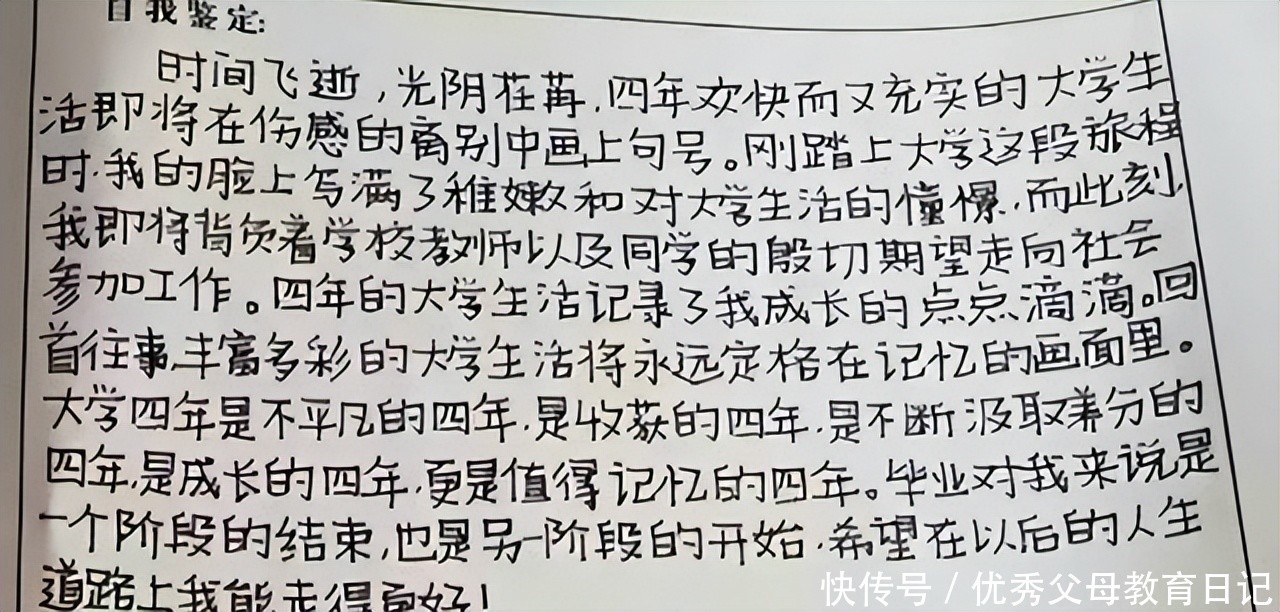 自我鉴定:
时间飞逝,光阴荏苒,四年欢快而又充实的大学生
活即将在伤感的离别中画上句号。刚踏上大学这段旅程
时,我的脸上写满了稚嫩和对大学生活的憧憬,而此刻
我即将背负着学校教师以及同学的殷切期望走向社会
参加工作。四年的大学生活记录了我成长的点点滴滴。回
首往事,丰富多彩的大学生活将永远定格在记忆的画面里。
大学四年是不平凡的四年,是收获的四年,是不断汲取养分的
四年,是成长的四年,更是值得记忆的四年。毕业对我来说是
一个阶段的结束,也是另一阶段的开始,希望在以后的人生
道路上我能走得更好!
快传号/优秀父母教育日记